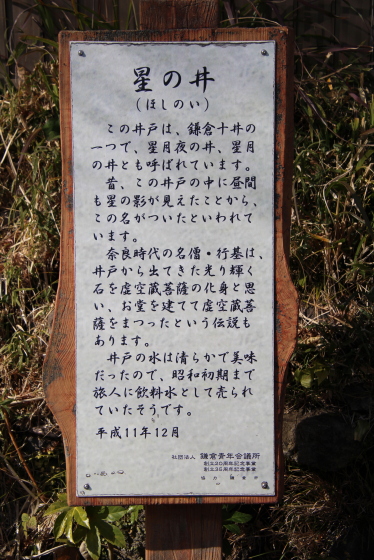 星の井
(ほしのい)
この井戸は、鎌倉十井の
一つで、星月夜の井、星月
の井とも呼ばれています。
昔、この井戸の中に昼間
も星の影が見えたことから、
この名がついたといわれて
います。
奈良時代の名僧・行基は、
井戸から出てきた光り輝く
石を虚空蔵菩薩の化身と思
い、お堂を建てて虚空蔵菩
薩をまつったという伝説も
あります。
井戸の水は清らかで美味
だったので、昭和初期まで
旅人に飲料水として売られ
ていたそうです。
平成11年12月
社団法人 鎌倉青年会議所
創立30周年記念事業
創立35周年記念事業
協力 鎌倉市